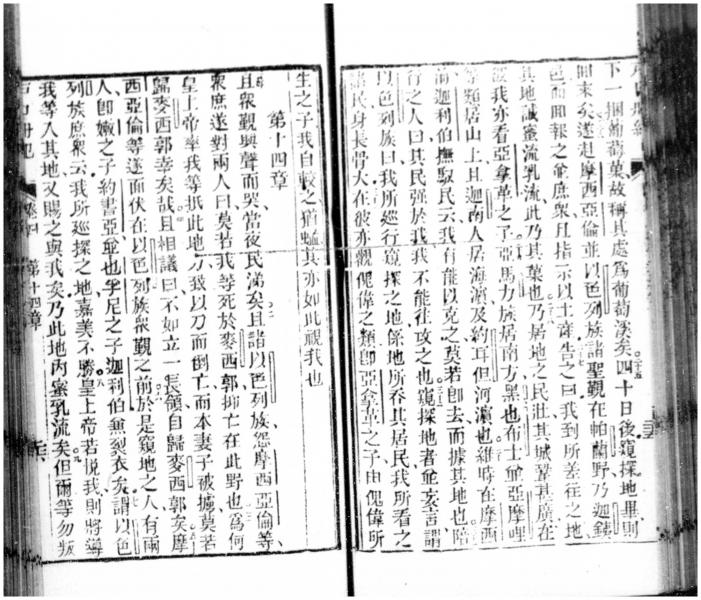 下一掴葡萄菓、故稱其處爲葡萄溪矣。四十日後、窺探地畢則
囘來矣、遂赴摩西亞倫並以色列族諸聖覲在帕蘭野乃迦鉄
邑而囬報之並庶衆且指示以土產告之曰我到所差往之地
其地誠蜜流乳流此乃其菓也乃居地之民壯其城鞏其廣在
彼我亦看亞拿革之子亞馬力族居南方黑也布士並亞摩哩
等類居山上且迦南人居海濵及約耳但河濵也維時在摩西
前迦利伯撫馭民云我有能以克之莫若卽去而據其地也陪
行之人曰其民强於我我不能往攻之也窺探地者並妄吿謂
以色列族曰我所巡行窺探之地係地所吞其居民我所看之
諸民身長骨大在彼亦覿傀偉之類卽亞拿革之子由傀偉所
生之子我自較之猶蜢其亦如此視我也
第十四章
且衆覲興聲而哭當夜民涕矣且諸以色列族怨摩西亞倫等、
衆庶遂對兩人曰莫若我等死於麥西郭抑亡在此野也爲何
皇上帝率我等抵此地乃致以刀而倒亡而本妻子破擄莫若
歸麥西郭幸矣哉且相議曰不如立一長領自歸麥西郭矣摩
西亞倫等遂面伏在以色列族衆覲之前於是窺地之人有兩
人卽嫩之子約書亞並也孚尼之子迦利伯並裂衣矣謂以色
列族庶衆云我所巡探之地嘉美不勝皇上帝若悅我則將導
我等入其地又賜之與我矣乃此地內蜜乳流矣但爾等勿叛
卷四 第十四章